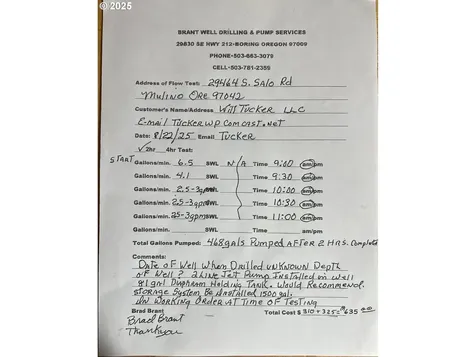 © 2025
BRANT WELL DRILLING & PUMP SERVICES
29830 SE HWY 212-BORING OREGON 97009
PHONE-503-663-3079
CELL-503-781-2355
Address of Flow Test: 29464 S. Salo Rd
Mulino Ore 97042
Customer's Name/Address Will Tucker LLC
E-mail Tuckerwp comcast.net
Date: 8/22/25 Email Tucker
✓2hr 4hr Test:
START Gallons/min. 6.5 SWL N/A Time 9:00 am/pm
Gallons/min. 4.1 SWL Time 9:30 am/pm
Gallons/min. 2.5-3gpm SWL Time 10:00 am/pm
Gallons/min. 2.5-3gpm SWL Time 10:30 am/pm
Gallons/min. 2.5-3gpm SWL Time 11:00 am/pm
Gallons/min. SWL Time am/pm
Total Gallons Pumped: 468gals Pumped AFTER 2 HRS. Completed
Comments:
Date of Well When Drilled unknown Depth
of Well? 2 Line Jet Pump Installed in Well
81 gal Diaphram Holding Tank. Would Recommend
storage System be installed 1500 gal.
in working order at time of testing
Brad Brant Total Cost $ 310+325=$635.00
Brad Brant
Thankyou